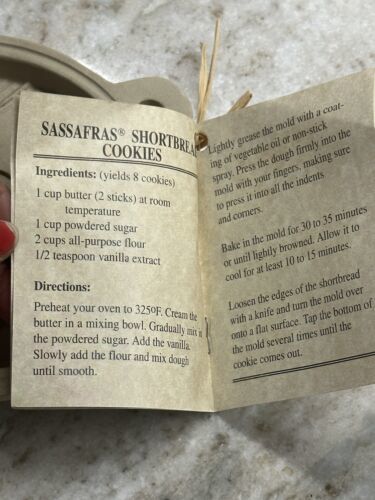 SASSAFRAS® SHORTBREAD
COOKIES
Ingredients: (yields 8 cookies)
1 cup butter (2 sticks) at room
temperature
1 cup powdered sugar
2 cups all-purpose flour
1/2 teaspoon vanilla extract
Directions:
Preheat your oven to 3250F. Cream the
butter in a mixing bowl. Gradually mix in
the powdered sugar. Add the vanilla.
Slowly add the flour and mix dough
until smooth.
Lightly grease the mold with a coat-
ing of vegetable oil or non-stick
spray. Press the dough firmly into the
mold with your fingers, making sure
to press it into all the indents
and corners.
Bake in the mold for 30 to 35 minutes
or until lightly browned. Allow it to
cool for at least 10 to 15 minutes.
Loosen the edges of the shortbread
with a knife and turn the mold over
onto a flat surface. Tap the bottom of
the mold several times until the
cookie comes out.